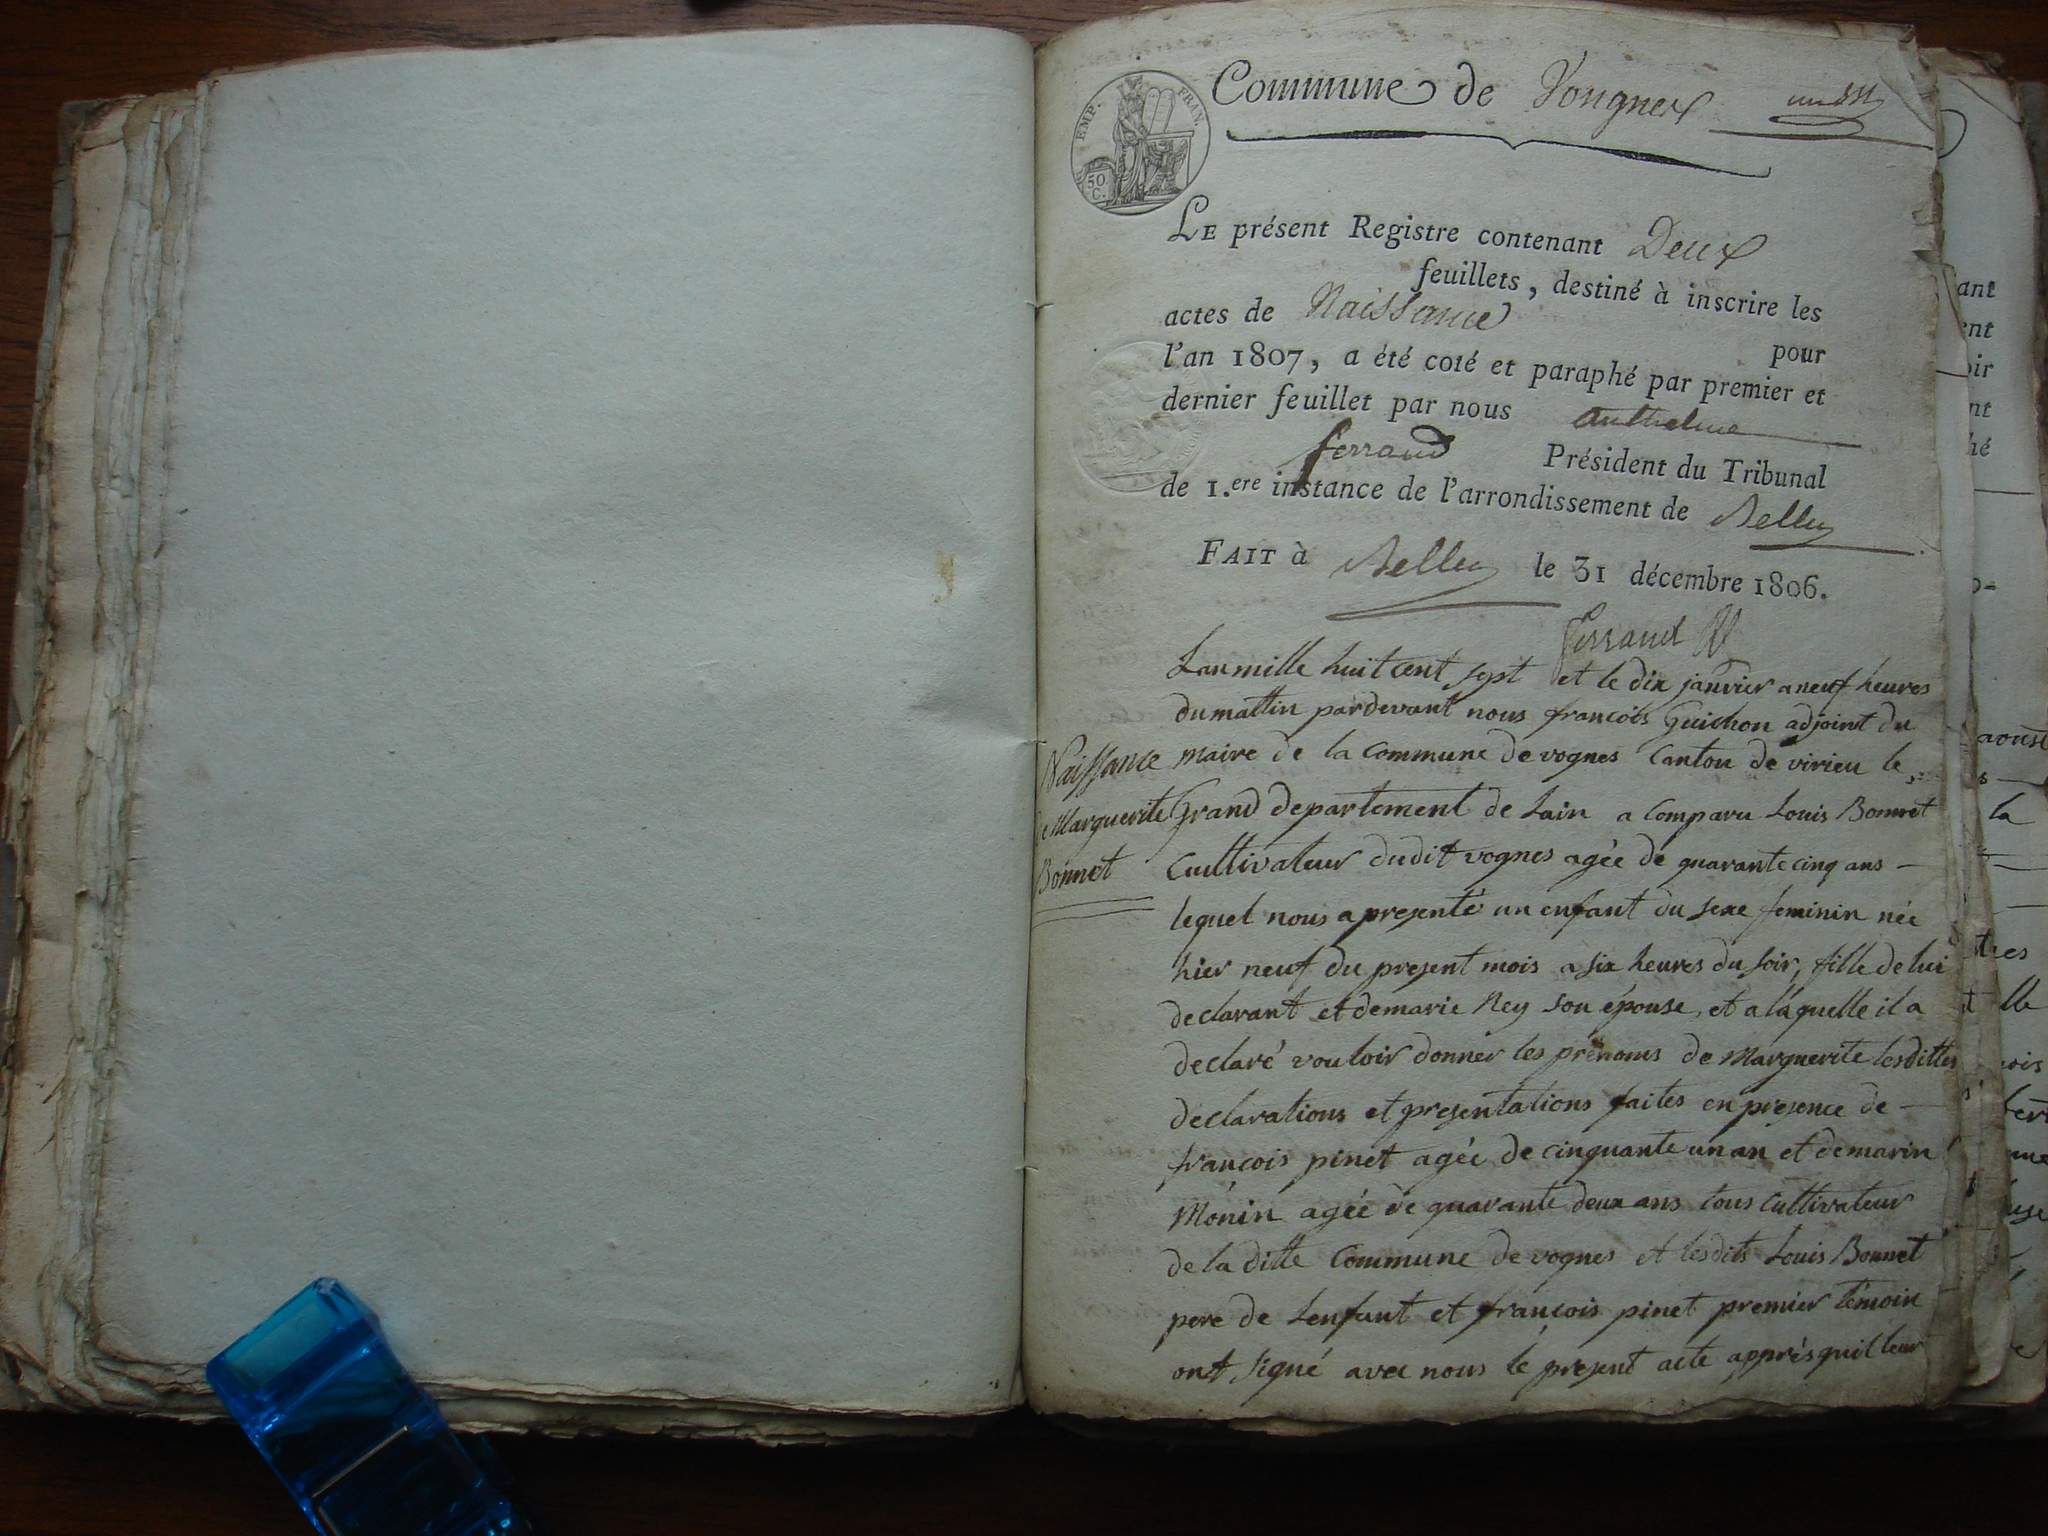 EMP. FRAN.
50.
C.
Commune de Vongnes
LE présent Registre contenant Deux
feuillets, destiné à inscrire les
actes de Naissance
pour
l'an 1807, a été coté et paraphé par premier et
dernier feuillet par nous Anthelme
ferrand Président du Tribunal
de 1.ere instance de l'arrondissement de Belley
FAIT à Belley le 31 décembre 1806.
Ferrand
Lan mille huit cent sept et le dix janvier a neuf heures
du mattin pardevant nous francois Guichon adjoint du
maire de la Commune de vognes Canton de virieu le
Grand departement de Lain a Comparu Louis Bonnet
Cultivateur dudit vognes agée de quarante cinq ans
lequel nous a presenté un enfant du sexe feminin née
hier neuf du present mois a six heures du soir, fille de lui
declarant et de marie Ney son épouse, et a laquelle il a
declaré vouloir donner les prenoms de Marguerite lesdittes
declarations et presentations faites en presence de
françois pinet agée de cinquante un an et de marin
Monin agée de quarante deux ans tous Cultivateur
de la ditte Commune de vognes et lesdits Louis Bonnet
pere de Lenfant et françois pinet premier témoin
ont signé avec nous le present acte apprès quil leur
Naissance
de Marguerite
Bonnet